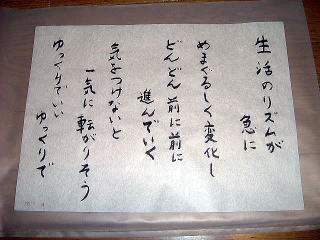 生活のリズムが
急に
めまぐるしく変化し
どんどん前に前に
進んでいく
気をつけないと
一気に転がりそう
ゆっくりでいい
ゆっくりで